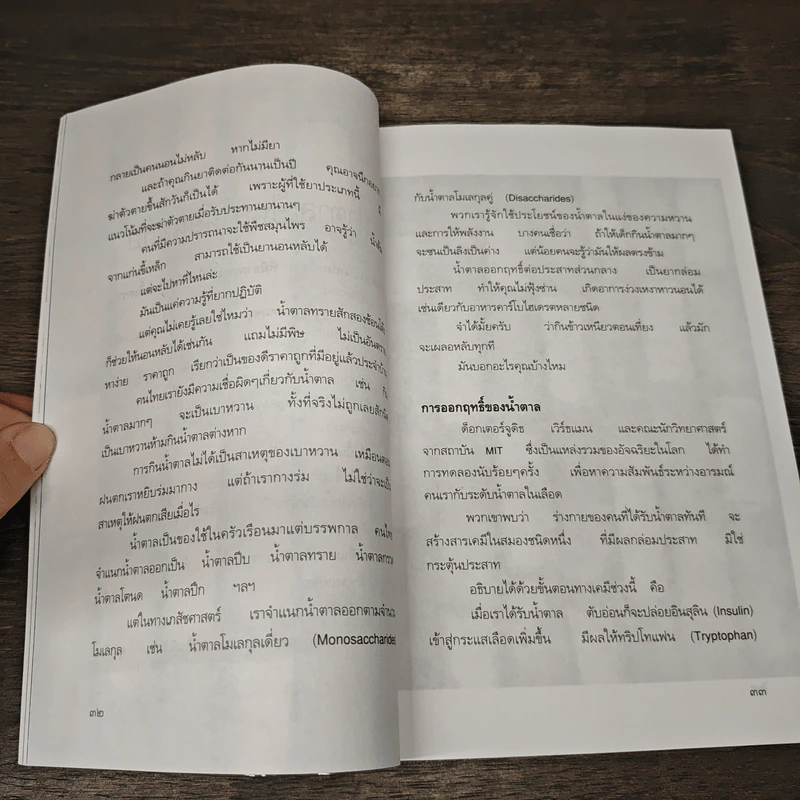 กลายเป็นคนนอนไม่หลับ หากไม่มียา
และถ้าคุณกินยาติดต่อกันนานเป็นปี คุณอาจนึกอยาก
ฆ่าตัวตายขึ้นสักวันก็เป็นได้ เพราะผู้ที่ใช้ยาประเภทนี้ มี
แนวโน้มที่จะฆ่าตัวตายเมื่อรับประทานยานานๆ
คนที่มีความปรารถนาจะใช้พืชสมุนไพร อาจรู้ว่า น้ำต้ม
จากแก่นขี้เหล็ก สามารถใช้เป็นยานอนหลับได้
แต่จะไปหาที่ไหนล่ะ
มันเป็นแค่ความรู้ที่ยากปฏิบัติ
แต่คุณไม่เคยรู้เลยใช่ไหมว่า น้ำตาลทรายสักสองช้อนโต๊ะ
ก็ช่วยให้นอนหลับได้เช่นกัน แถมไม่มีพิษ ไม่เป็นอันตราย
หาง่าย ราคาถูก เรียกว่าเป็นของดีราคาถูกที่มีอยู่แล้วประจำบ้าน
คนไทยเรายังมีความเชื่อผิดๆเกี่ยวกับน้ำตาล เช่น กิน
น้ำตาลมากๆ จะเป็นเบาหวาน ทั้งที่จริงไม่ถูกเลยสักนิด
เป็นเบาหวานห้ามกินน้ำตาลต่างหาก
การกินน้ำตาลไม่ได้เป็นสาเหตุของเบาหวาน เหมือนตอน
ฝนตกเราหยิบร่มมากาง แต่ถ้าเรากางร่ม ไม่ใช่ว่าจะเป็น
สาเหตุให้ฝนตกเสียเมื่อไร
น้ำตาลเป็นของใช้ในครัวเรือนมาแต่บรรพกาล คนไทย
จำแนกน้ำตาลออกเป็น น้ำตาลปีบ น้ำตาลทราย น้ำตาลกรวด
น้ำตาลโตนด น้ำตาลปึก ฯลฯ
แต่ในทางเภสัชศาสตร์ เราจำแนกน้ำตาลออกตามจำนวน
โมเลกุล เช่น น้ำตาลโมเลกุลเดี่ยว (Monosaccharides
๓๒
กับน้ำตาลโมเลกุลคู่ (Disaccharides)
พวกเรารู้จักใช้ประโยชน์ของน้ำตาลในแง่ของความหวาน
และการให้พลังงาน บางคนเชื่อว่า ถ้าให้เด็กกินน้ำตาลมากๆ
จะซนเป็นลิงเป็นค่าง แต่น้อยคนจะรู้ว่ามันให้ผลตรงข้าม
น้ำตาลออกฤทธิ์ต่อประสาทส่วนกลาง เป็นยากล่อม
ประสาท ทำให้คุณไม่ฟุ้งซ่าน เกิดอาการง่วงเหงาหาวนอนได้
เช่นเดียวกับอาหารคาร์โบไฮเดรตหลายชนิด
จำได้มั้ยครับ ว่ากินข้าวเหนียวตอนเที่ยง แล้วมัก
จะเผลอหลับทุกที
มันบอกอะไรคุณบ้างไหม
การออกฤทธิ์ของน้ำตาล
ด็อกเตอร์จูดิธ เวิร์ธแมน และคณะนักวิทยาศาสตร์
จากสถาบัน MIT ซึ่งเป็นแหล่งรวมของอัจฉริยะในโลก ได้ทำ
การทดลองนับร้อยๆครั้ง เพื่อหาความสัมพันธ์ระหว่างอารมณ์
คนเรากับระดับน้ำตาลในเลือด
พวกเขาพบว่า ร่างกายของคนที่ได้รับน้ำตาลทันที จะ
สร้างสารเคมีในสมองชนิดหนึ่ง ที่มีผลกล่อมประสาท มิใช่
กระตุ้นประสาท
อธิบายได้ด้วยขั้นตอนทางเคมีช่วงนี้ คือ
เมื่อเราได้รับน้ำตาล ตับอ่อนก็จะปล่อยอินสุลิน (Insulin)
เข้าสู่กระแสเลือดเพิ่มขึ้น มีผลให้ทริปโทแฟน (Tryptophan)
๓๓